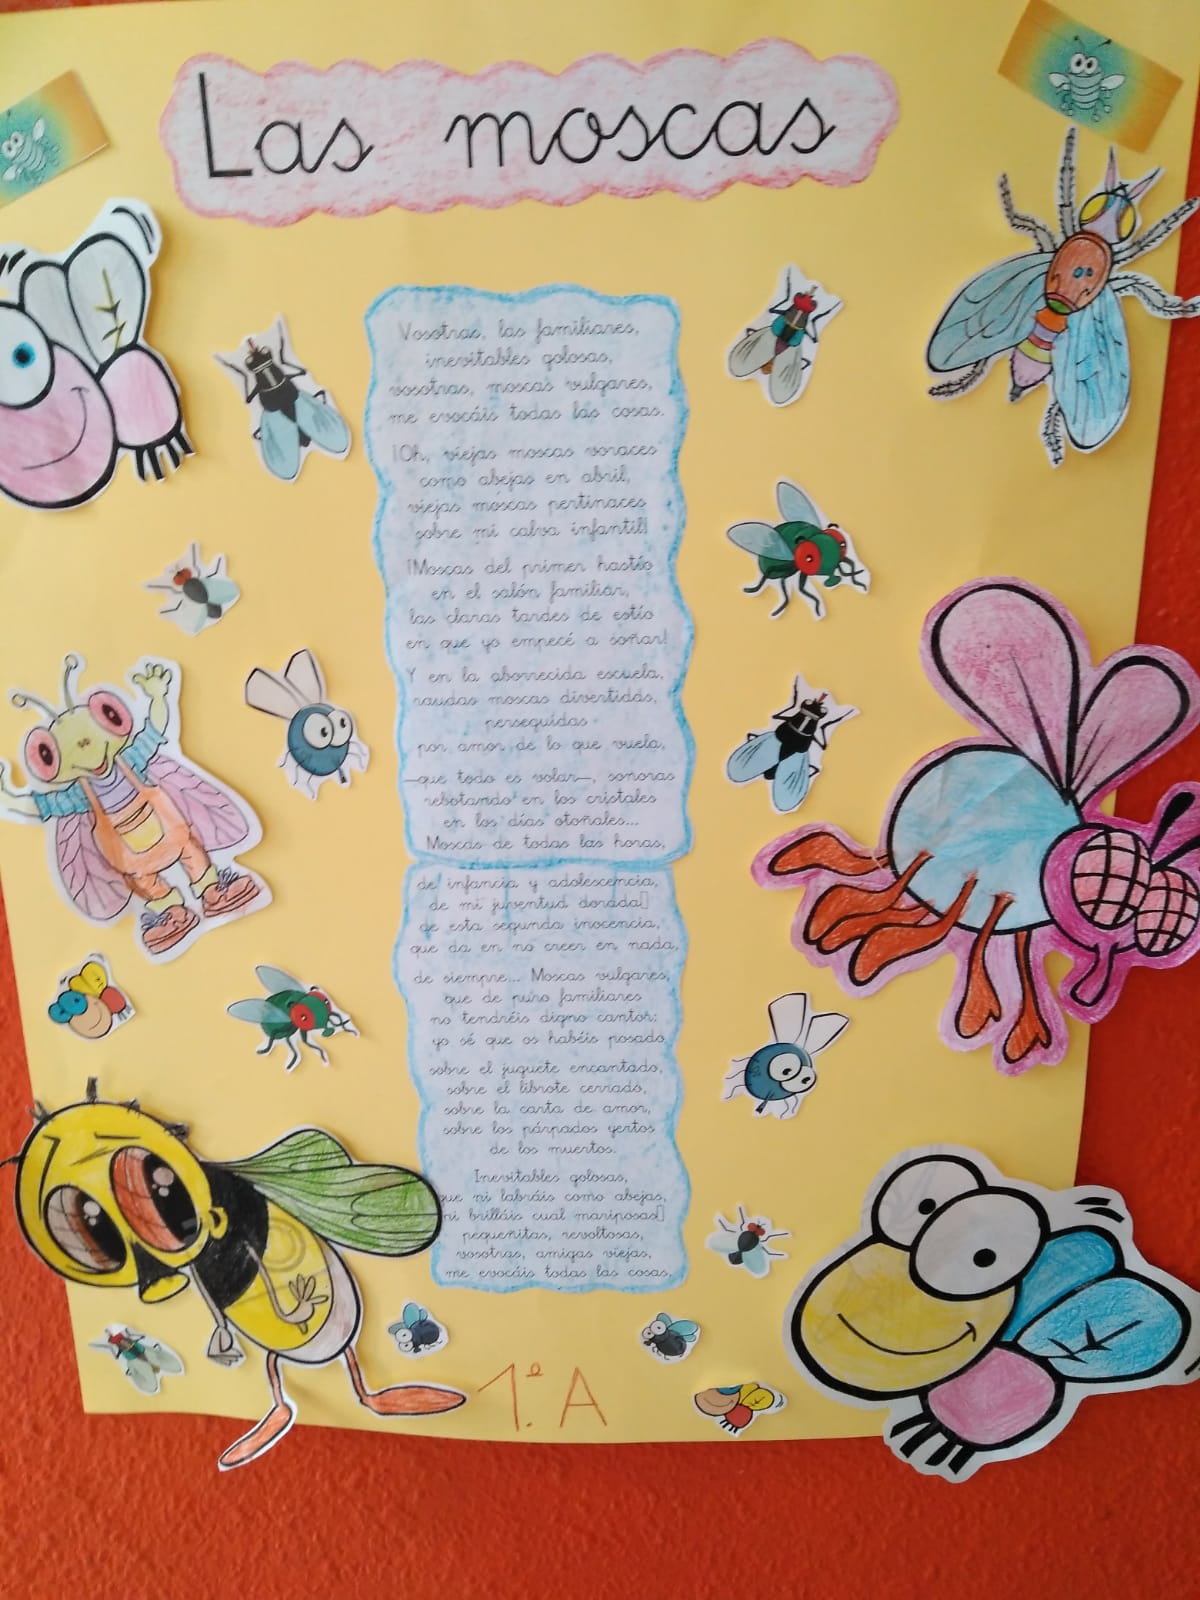 Las moscas
Vosotras, las familiares,
inevitables golosas,
vosotras, moscas vulgares,
me evocáis todas las cosas.
¡Oh, viejas moscas voraces
como abejas en abril,
viejas moscas pertinaces
sobre mi calva infantil!
¡Moscas del primer hastío
en el salón familiar,
las claras tardes de estío
en que yo empecé a soñar!
Y en la aborrecida escuela,
raudas moscas divertidas,
perseguidas
por amor de lo que vuela,
—que todo es volar—, sonoras
rebotando en los cristales
en los días otoñales...
Moscas de todas las horas,
de infancia y adolescencia,
de mi juventud dorada▯
de esta segunda inocencia,
que da en no creer en nada,
de siempre... Moscas vulgares,
que de puro familiares
no tendréis digno cantor:
yo sé que os habéis posado
sobre el juguete encantado,
sobre el librote cerrado,
sobre la carta de amor,
sobre los párpados yertos
de los muertos.
Inevitables golosas,
que ni labráis como abejas,
ni brilláis cual mariposas▯
pequeñitas, revoltosas,
vosotras, amigas viejas,
me evocáis todas las cosas.
1.º A